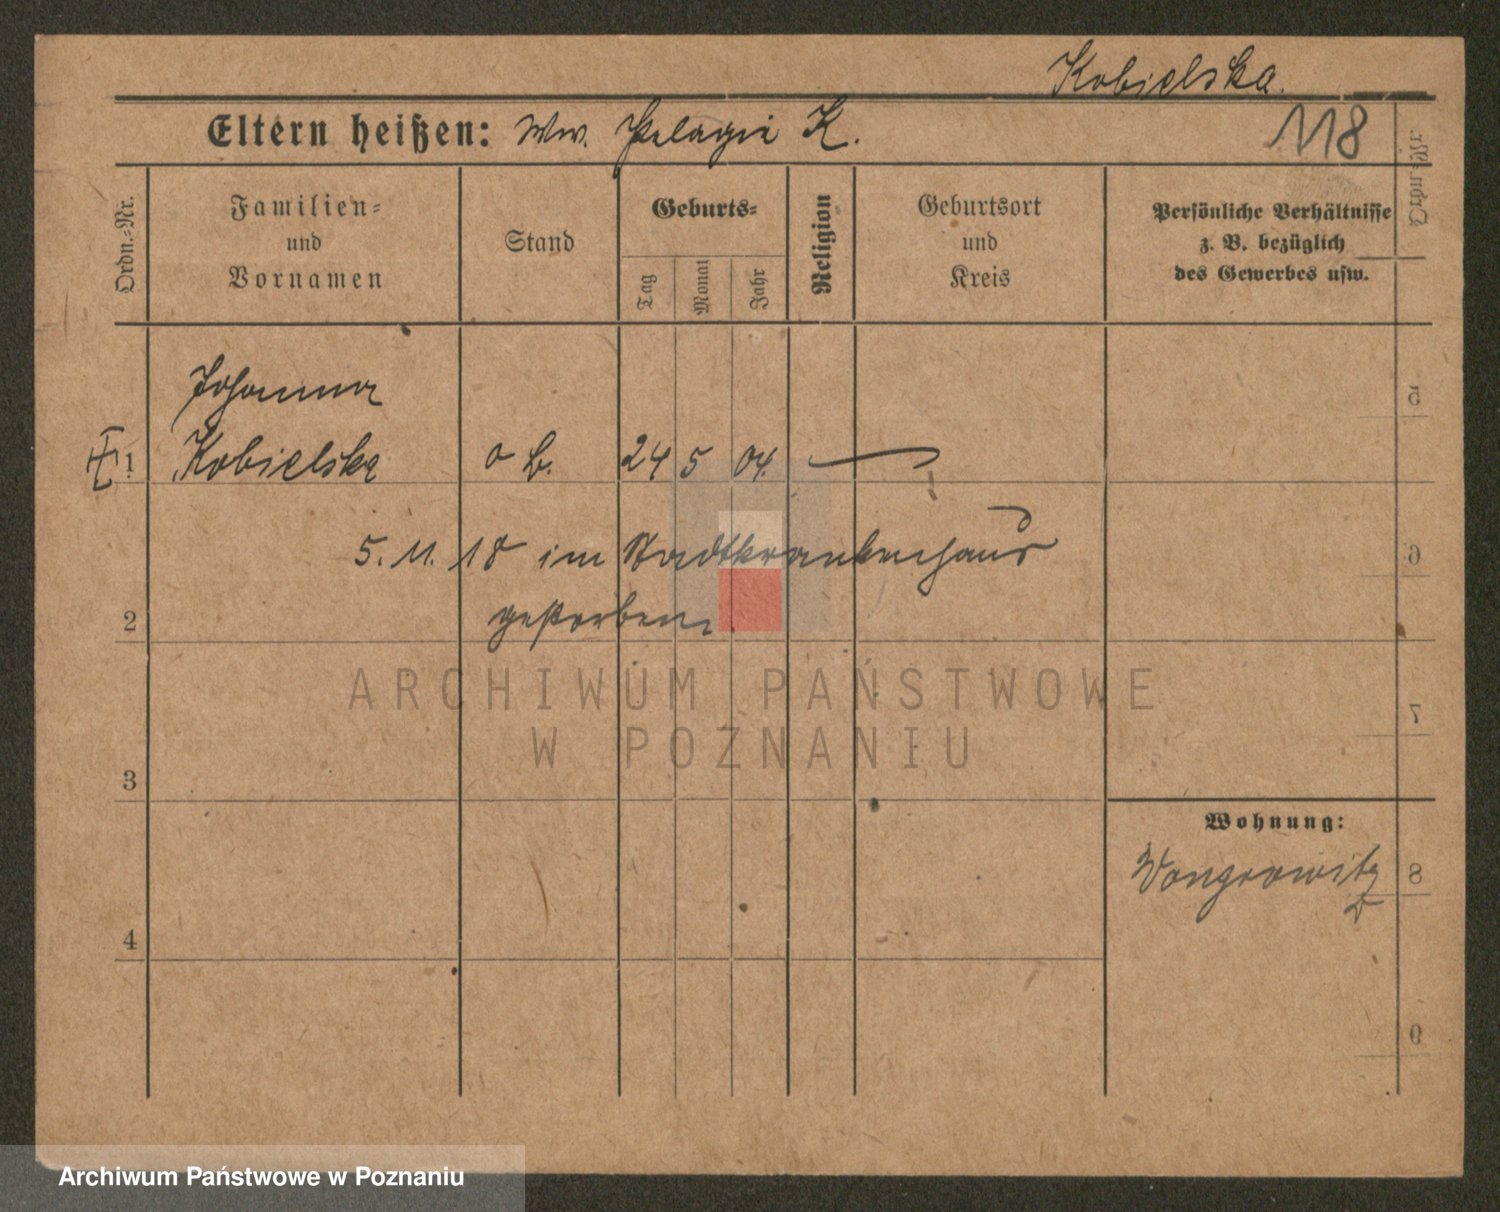 Kobielska.
Eltern heißen: Ww. Pelagie K.
118
Ordn.-Nr.
Familien- und Vornamen
Stand
Geburts-
Tag
Monat
Jahr
Religion
Geburtsort und Kreis
Persönliche Verhältnisse z. B. bezüglich des Gewerbes usw.
Johanna
1 Kobielska o B. 24 5 04.
5. 11. 18 im Stadtkrankenhaus
2 gestorben.
ARCHIWUM PAŃSTWOWE
W POZNANIU
3
Wohnung:
Wongrowitz
4
5
6
7
8
9
Archiwum Państwowe w Poznaniu